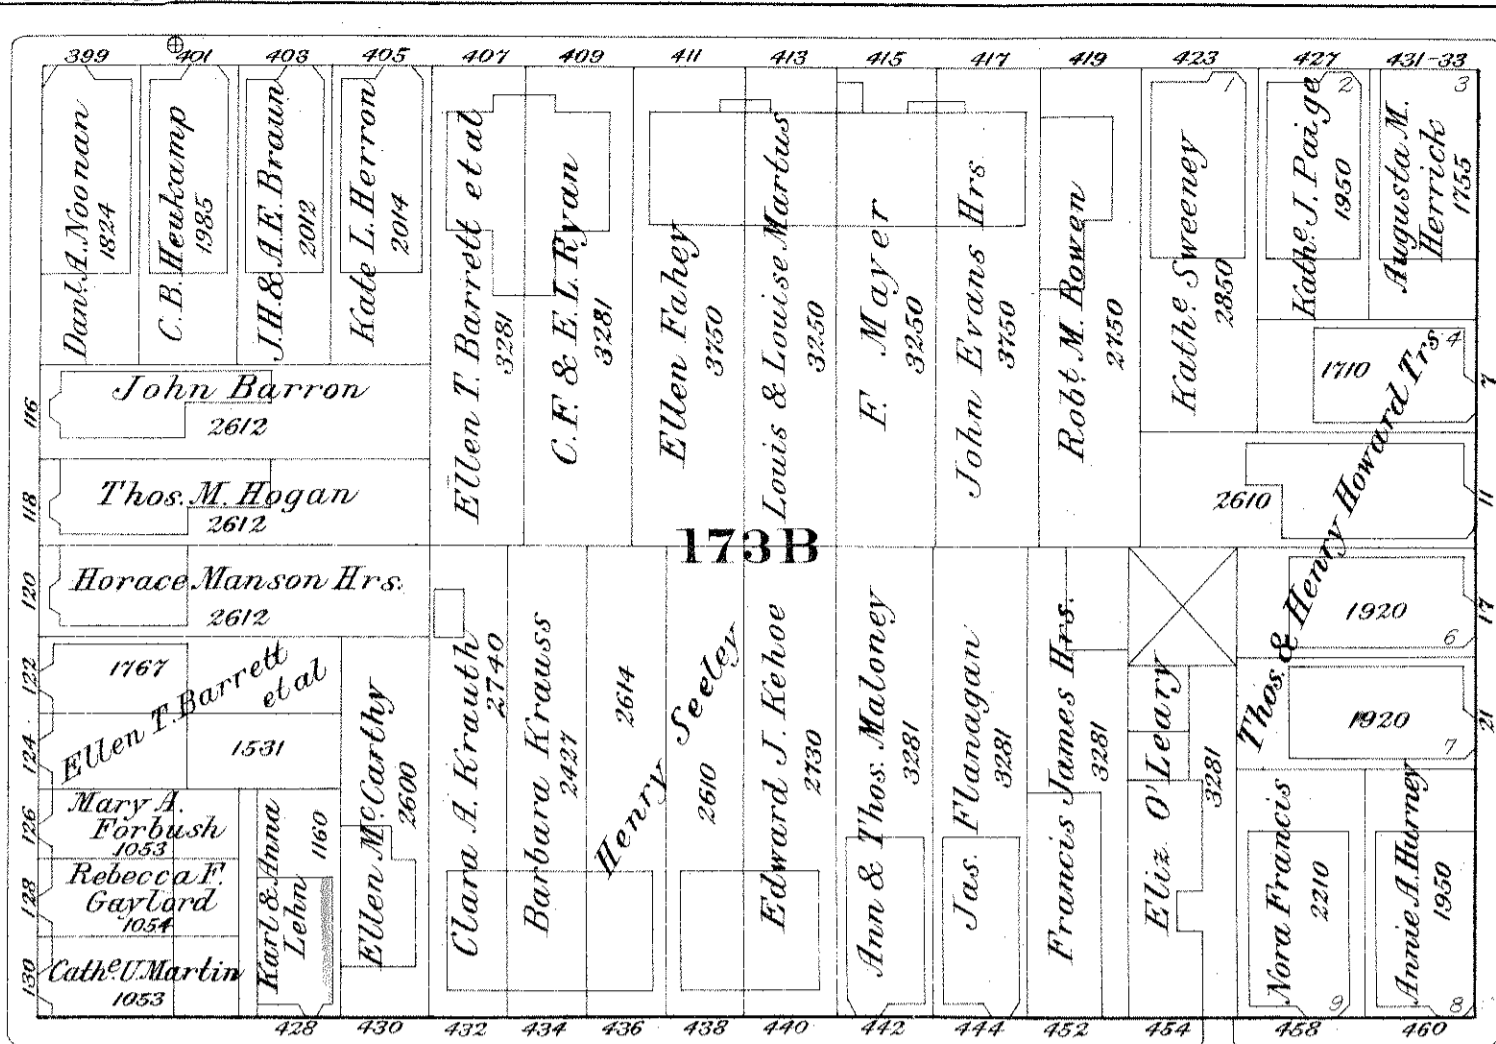 399 401 403 405 407 409 411 413 415 417 419 423 427 431-33
Danl. A. Noonan
1824
C. B. Heukamp
1985
J. H. & A. E. Braun
2012
Kate L. Herron
2014
Ellen T. Barrett et al
3281
C. F. & E. L. Ryan
3281
Ellen Fahey
3750
Louis & Louise Martus
3250
F. Mayer
3250
John Evans Hrs
3750
Robt. M. Bowen
2750
Kathe. Sweeney
2850
1
Kathe. J. Paige
1950
2
Augusta M.
Herrick
1755
3
116
John Barron
2612
118
Thos. M. Hogan
2612
120
Horace Manson Hrs.
2612
173B
1710
4
7
2610
11
Thos. & Henry Howard Trs.
1920
6
17
1920
7
21
122
1767
Ellen T. Barrett
et al
124
1531
126
Mary A.
Forbush
1053
128
Rebecca F.
Gaylord
1054
130
Cathe. U. Martin
1053
Karl & Anna
Lehn
1160
Ellen McCarthy
2600
Clara A. Krauth
2740
Barbara Krauss
2427
2614
Henry Seeley
2610
Edward J. Kehoe
2730
Ann & Thos. Maloney
3281
Jas. Flanagan
3281
Francis James Hrs.
3281
Eliz. O'Leary
3281
Nora Francis
2210
9
Annie A. Hurney
1950
8
428 430 432 434 436 438 440 442 444 452 454 458 460